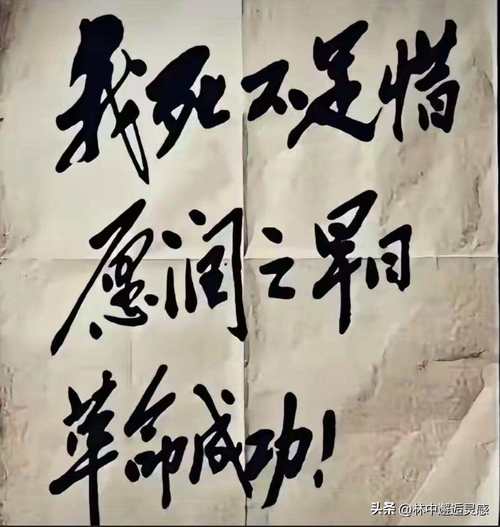 我死不足惜
愿润之早日
革命成功!
头条 @林中邂逅灵感